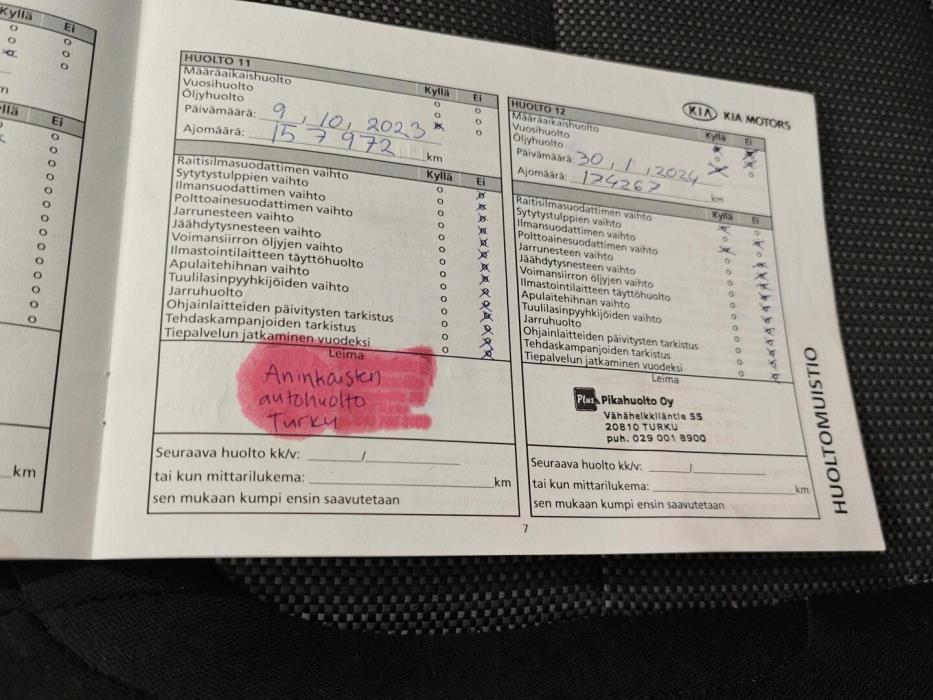 Kyllä
Ei
llä
Ei
km
HUOLTO 11
Kyllä
Ei
Määräaikaishuolto
Vuosihuolto
Öljyhuolto
Päivämäärä: 9, 10, 2023
Ajomäärä: 157972 km
Kyllä
Ei
Raitisilmasuodattimen vaihto
Sytytystulppien vaihto
Ilmansuodattimen vaihto
Polttoainesuodattimen vaihto
Jarrunesteen vaihto
Jäähdytysnesteen vaihto
Voimansiirron öljyjen vaihto
Ilmastointilaitteen täyttöhuolto
Apulaitehihnan vaihto
Tuulilasinpyyhkijöiden vaihto
Jarruhuolto
Ohjainlaitteiden päivitysten tarkistus
Tehdaskampanjoiden tarkistus
Tiepalvelun jatkaminen vuodeksi
Leima
Aninkaisten
autohuolto
Turku
Seuraava huolto kk/v: /
tai kun mittarilukema: km
sen mukaan kumpi ensin saavutetaan
HUOLTO 12
KIA KIA MOTORS
Kyllä
Ei
Määräaikaishuolto
Vuosihuolto
Öljyhuolto
Päivämäärä: 30, 1, 2024
Ajomäärä: 174267 km
Kyllä
Ei
Raitisilmasuodattimen vaihto
Sytytystulppien vaihto
Ilmansuodattimen vaihto
Polttoainesuodattimen vaihto
Jarrunesteen vaihto
Jäähdytysnesteen vaihto
Voimansiirron öljyjen vaihto
Ilmastointilaitteen täyttöhuolto
Apulaitehihnan vaihto
Tuulilasinpyyhkijöiden vaihto
Jarruhuolto
Ohjainlaitteiden päivitysten tarkistus
Tehdaskampanjoiden tarkistus
Tiepalvelun jatkaminen vuodeksi
Leima
Plus Pikahuolto Oy
Vähäheikkiläntie 55
20810 TURKU
puh. 029 001 8900
Seuraava huolto kk/v: /
tai kun mittarilukema: km
sen mukaan kumpi ensin saavutetaan
HUOLTOMUISTIO
7